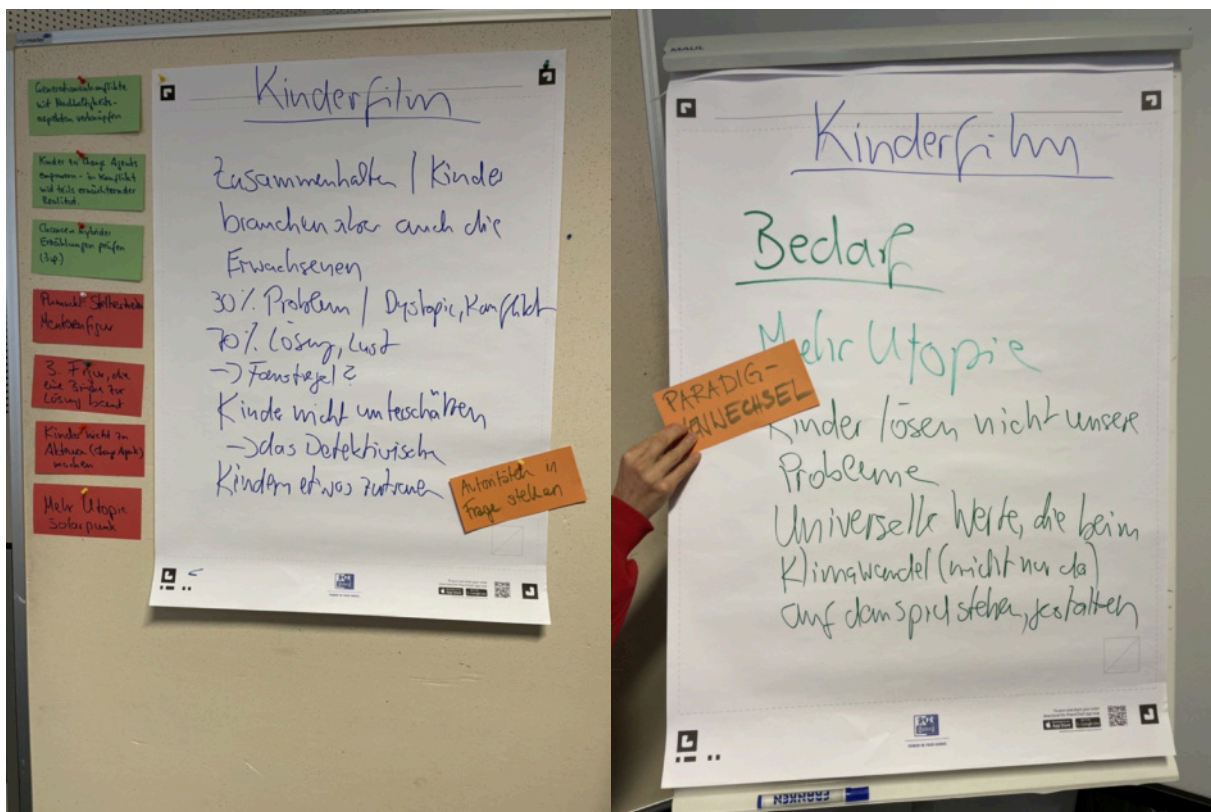 Generationenkonflikte
mit Nachhaltigkeits-
aspekten verknüpfen
Kinder zu Change Agents
empowern - in Konflikt
mit teils ernüchternder
Realität.
Chancen hybrider
Erzählungen prüfen
Mentorenfigur
3. Figur, die
eine Brücke zur
Lösung baut
Kinder nicht zu
machen
Mehr Utopie
Solarpunk
Kinderfilm
Zusammenhalten / Kinder
brauchen aber auch die
Erwachsenen
30% Problem / Dystopie, Konflikt
70% Lösung, Lust
-> Faustregel?
Kinder nicht unterschätzen
-> das Detektivische
Kindern etwas zutrauen
Autoritäten in
Frage stellen
MAUL
Kinderfilm
Bedarf
Mehr Utopie
PARADIG-
ENWECHSEL
Kinder lösen nicht unsere
Probleme
Universelle Werte, die beim
Klimawandel (nicht nur da)
auf dem spiel stehen, gestalten
FRANKEN